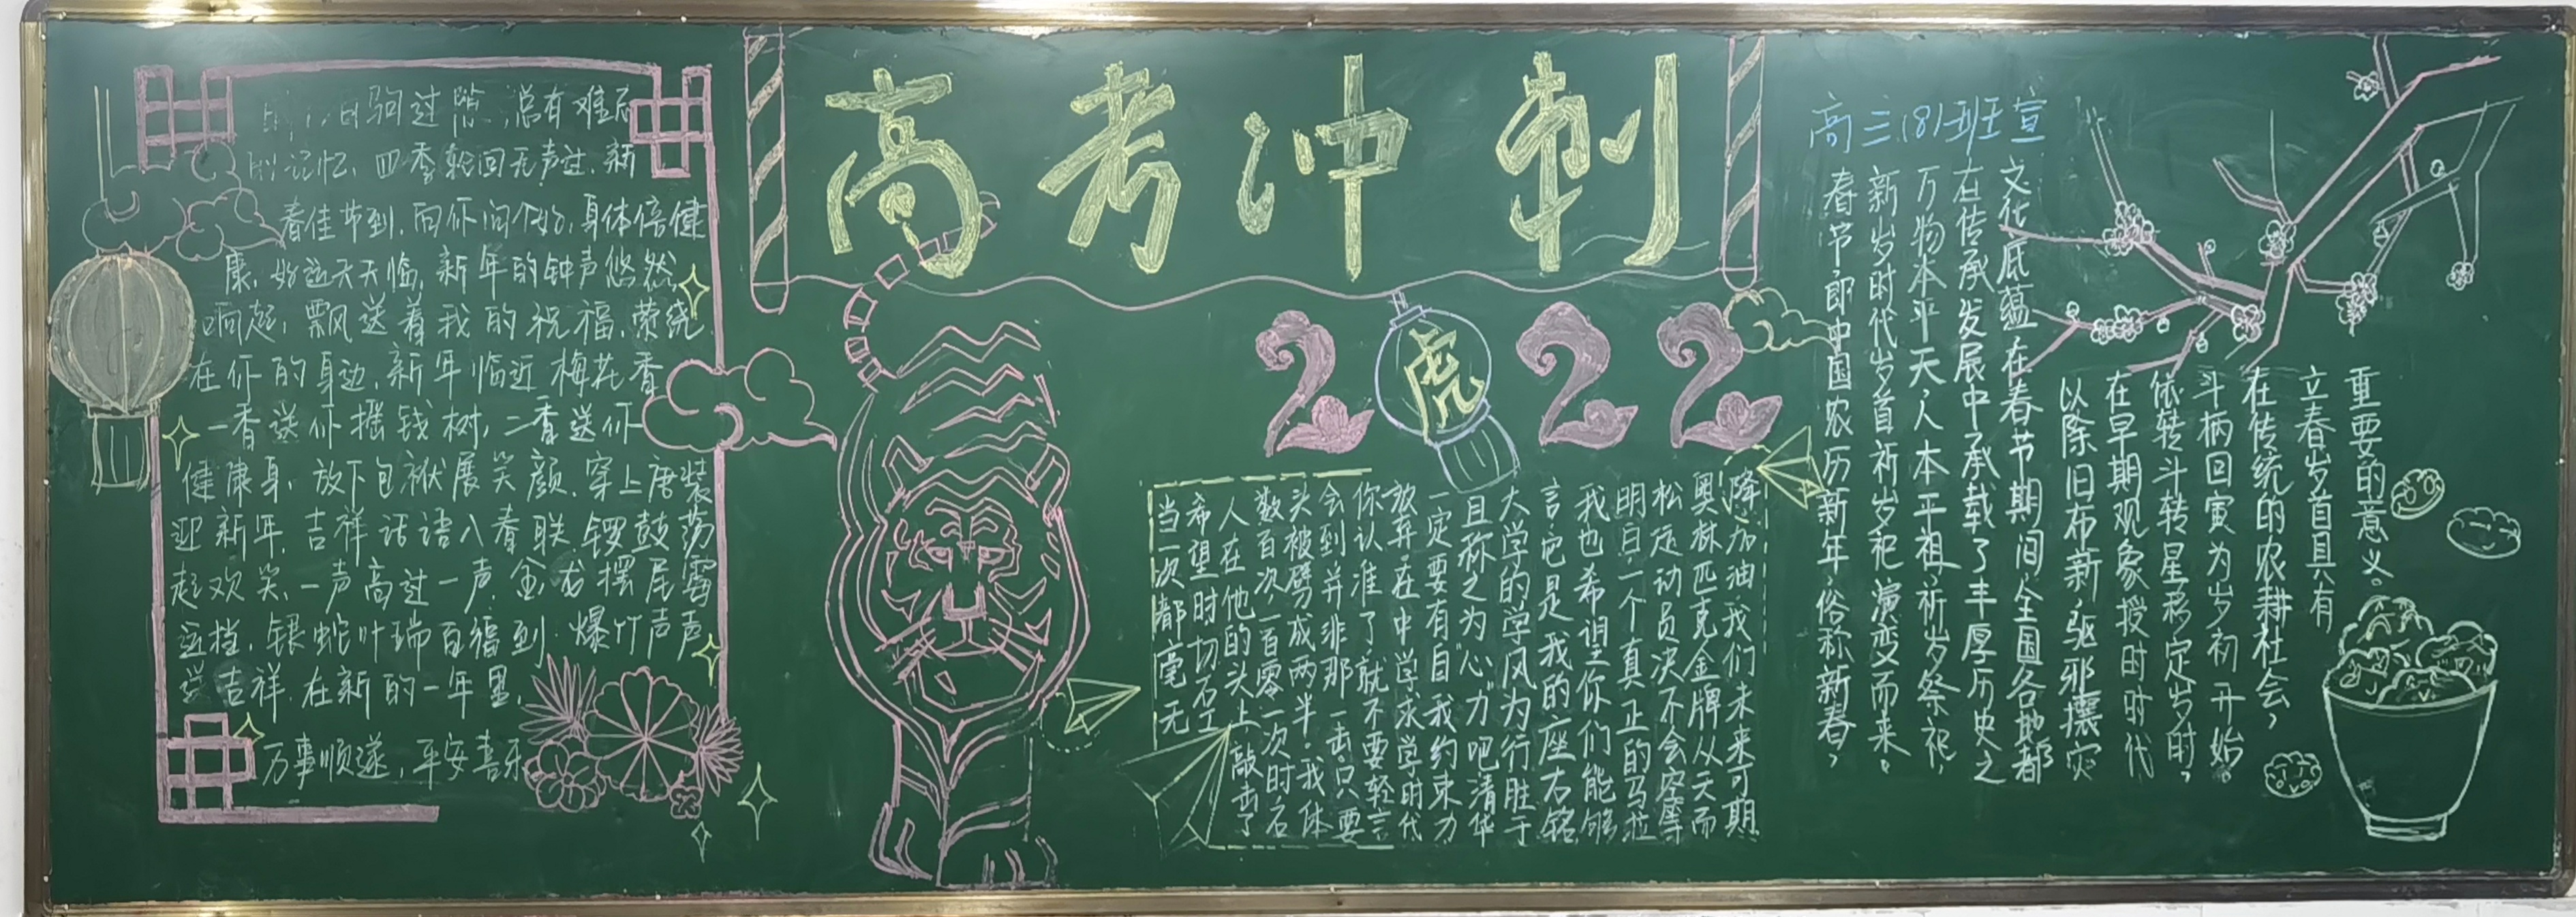 白驹过隙,总有难忘
的记忆,四季轮回无声过,新
春佳节到,向你问个好,身体倍健
康,好运天天临,新年的钟声悠然
响起,飘送着我的祝福,萦绕
在你的身边,新年临近梅花香
一香送你摇钱树,二香送你
健康身,放下包袱展笑颜,穿上唐装
迎新年,吉祥话语入春联,锣鼓荡
起欢笑,一声高过一声,金龙摆尾霉
运挡,银蛇叶瑞百福到,爆竹声声
送吉祥,在新的一年里,
万事顺遂,平安喜乐
高考冲刺
2虎22
当一次都毫无
希望时切石工
人在他的头上敲击了
数百次一百零一次时石
头被劈成两半,我体
会到并非那一击,只要
你认准了就不要轻言
放弃,在中学求学时代
一定要有自我约束力
且称之为"心力"吧清华
大学的学风为行胜于
言"它是我的座右铭
我也希望你们能够
明日一个真正的马拉
松运动员决不会空等
奥林匹克金牌从天而
降加油我们未来可期
高三(8)班宣
春节即中国农历新年,俗称新春,
新岁时代岁首祈岁祀演变而来。
万物本乎天人本乎祖,祈岁祭祀,
在传承发展中承载了丰厚历史之
文化底蕴在春节期间全国各地都
以除旧布新驱邪攘灾
在早期观象授时时代
依转斗转星移定岁时,
斗柄回寅为岁初开始。
在传统的农耕社会,
立春岁首具有
重要的意义。